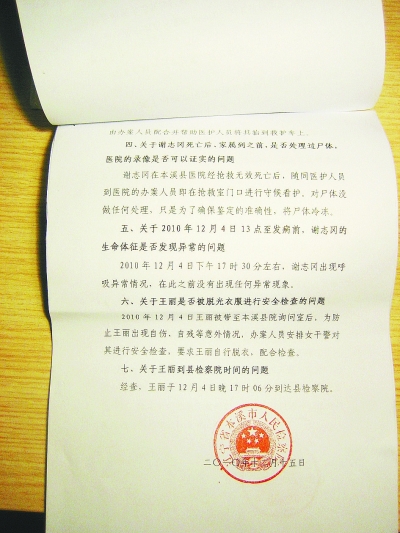 由办案人员配合并帮助医护人员将其临到救护车上。
四、关于谢志冈死亡后，家属到之前，是否处理过尸体，
医院的录像是否可以证实的问题
谢志冈在本溪县医院经抢救无效死亡后，随同医护人员
到医院的办案人员即在抢救室门口进行守候看护，对尸体没
做任何处理，只是为了确保鉴定的准确性，将尸体冷冻。
五、关于2010年12月4日13点至发病前，谢志冈的
生命体征是否发现异常的问题
2010年12月4日下午17时30分左右，谢志冈出现呼
吸异常情况，在此之前没有出现任何异常现象。
六、关于王丽是否被脱光衣服进行安全检查的问题
2010年12月4日王丽被带至本溪院询问室后，为防
止王丽出现自伤、自残等意外情况，办案人员安排女干警对
其进行安全检查，要求王丽自行脱衣，配合检查。
七、关于王丽到县检察院时间的问题
经查，王丽于12月4日晚17时06分到达县检察院。
辽宁省本溪市人民检察院
二〇一〇年十二月十五日